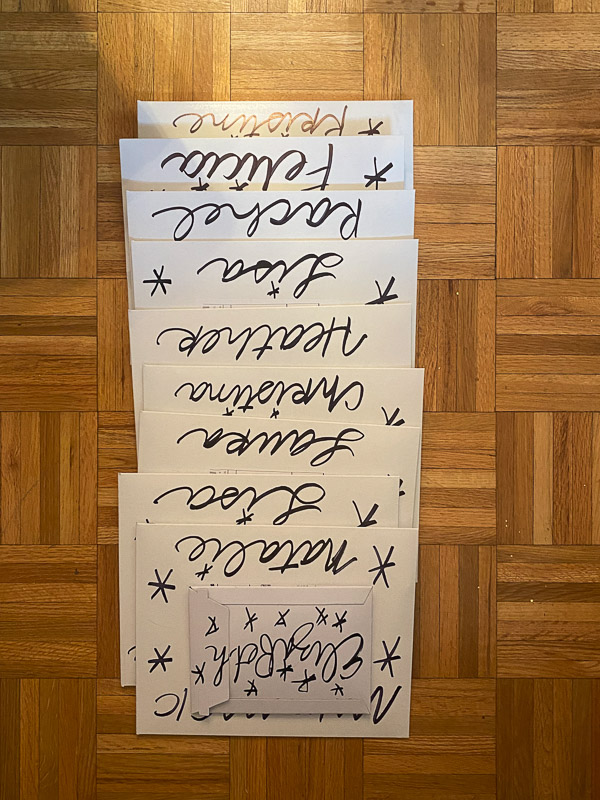 Kristine
Felicia
Rachel
Lisa
Heather
Christina
Laura
Lisa
Natalie
ElizaBeth